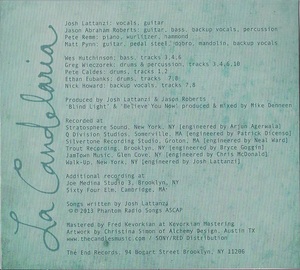 La Candelaria
Josh Lattanzi: vocals, guitar
Jason Abraham Roberts: guitar, bass, backup vocals, percussion
Pete Remm: piano, wurlitzer, hammond
Matt Pynn: guitar, pedal steel, dobro, mandolin, backup vocals
Wes Hutchinson: bass, tracks 3,4,6
Greg Wieczorek: drums & percussion, tracks 3,4,6,10
Pete Caldes: drums, tracks 1,2
Ethan Eubanks: drums, tracks 7,8
Nick Howard: backup vocals, 7,8
Produced by Josh Lattanzi & Jason Roberts
"Blind Light" & "Believe You Now" produced & mixed by Mike Daneen
Recorded at
Stratosphere Sound, New York, NY [engineered by Arjun Agerwala]
Q Division Studios, Somerville, MA [engineered by Patrick DiCenso]
Silvertone Recording Studio, Groton, MA [engineered by Neal Ward]
Trout Recording, Brooklyn, NY [engineered by Bryce Goggin]
JamTown Music, Glen Cove, NY [engineered by Chris McDonald]
Walk-Up, New York, NY [engineered by Josh Lattanzi]
Additional recording at
Joe Medina Studio 3, Brooklyn, NY
Sixty Four Elm, Cambridge, MA
Songs written by Josh Lattanzi
© ℗ 2013 Phantom Radio Songs ASCAP
Mastered by Fred Kevorkian at Kevorkian Mastering
Artwork by Christina Simon of Alchemy Design, Austin TX
www.thecandlesmusic.com / SONY/RED Distribution
The End Records, 94 Bogart Street Brooklyn, NY